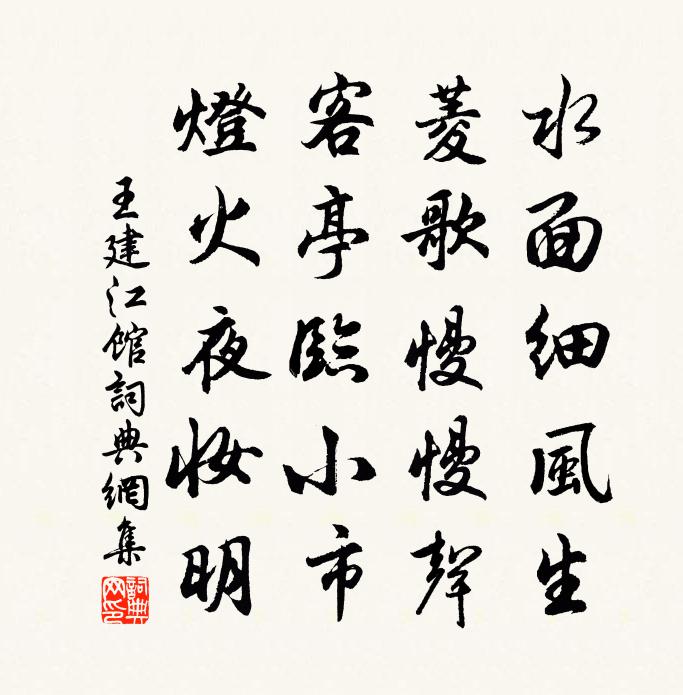 水面細風生
菱歌慢慢聲
客亭臨小市
燈火夜妝明
王建江館詞典網集
詞典網印